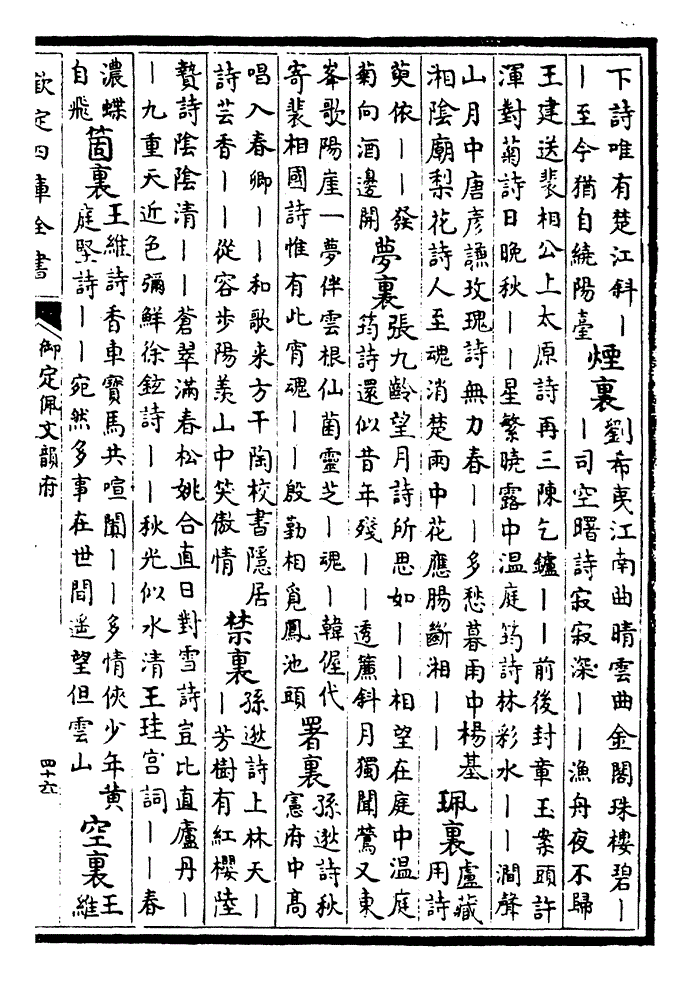 下詩唯有楚江斜｜
｜至今猶自繞陽臺
煙裏
劉希夷江南曲晴雲曲金閣珠樓碧｜
｜司空曙詩寂寂深｜｜漁舟夜不歸
王建送裴相公上太原詩再三陳乞鑪｜｜前後封章玉案頭許
渾對菊詩日晚秋｜｜星繁曉露中溫庭筠詩林彩水｜｜澗聲
山月中唐彥謙玫瑰詩無力春｜｜多愁暮雨中楊基
湘陰廟梨花詩人至魂消楚雨中花應腸斷湘｜｜
珮裏
盧藏
用詩
萸依｜｜發
菊向酒邊開
夢裏
張九齡望月詩所思如｜｜相望在庭中溫庭
筠詩還似昔年殘｜｜透簾斜月獨聞鶯又東
峯歌陽崖一夢伴雲根仙菌靈芝｜魂｜韓偓代
寄裴相國詩惟有此宵魂｜｜殷勤相覓鳳池頭
署裏
孫逖詩秋
憲府中高
唱入春卿｜｜和歌来方干陶校書隱居
詩芸香｜｜從容步陽羨山中笑傲情
禁裏
孫逖詩上林天｜
｜芳樹有紅櫻陸
贄詩陰陰清｜｜蒼翠滿春松姚合直日對雪詩豈比直廬丹｜
｜九重天近色彌鮮徐鉉詩｜｜秋光似水清王珪宮詞｜｜春
濃蝶
自飛
箇裏
王維詩香車寶馬共喧闐｜｜多情俠少年黃
庭堅詩｜｜宛然多事在世間遥望但雲山
空裏
王
維
欽定四庫全書
御定佩文韻府
四十六